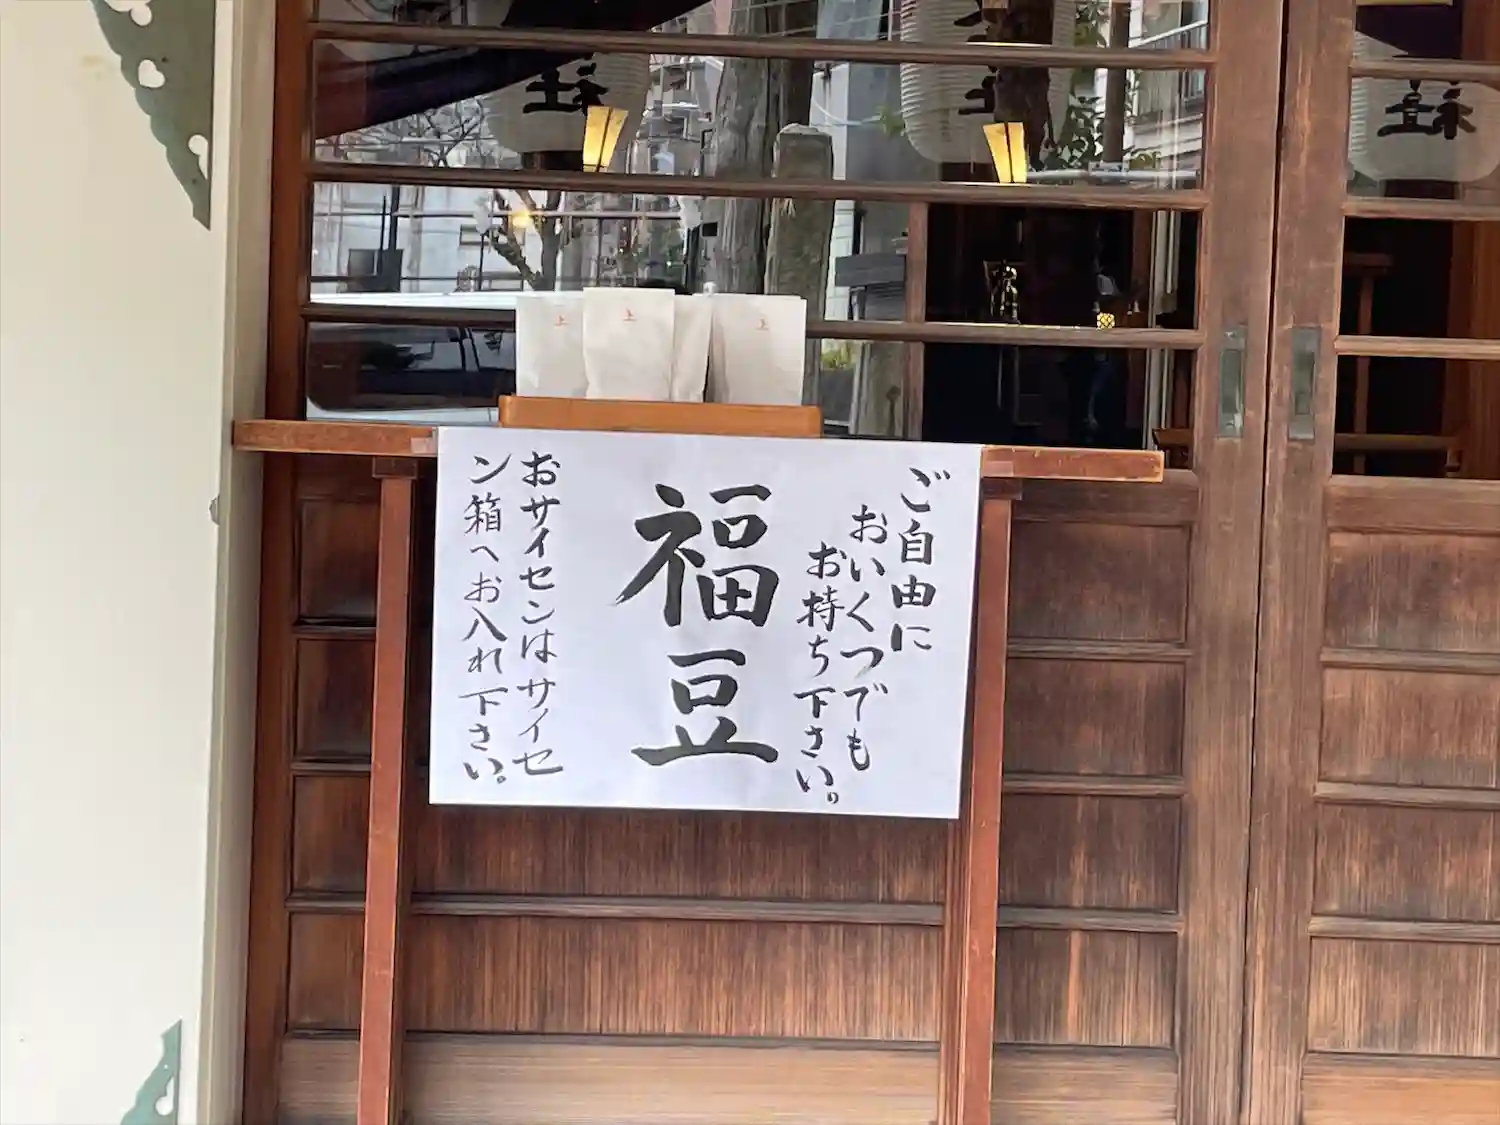 ご自由に
おいくつでも
お持ち下さい。
福豆
おサイセンはサイセ
ン箱へお入れ下さい。
上
上
上
社
社